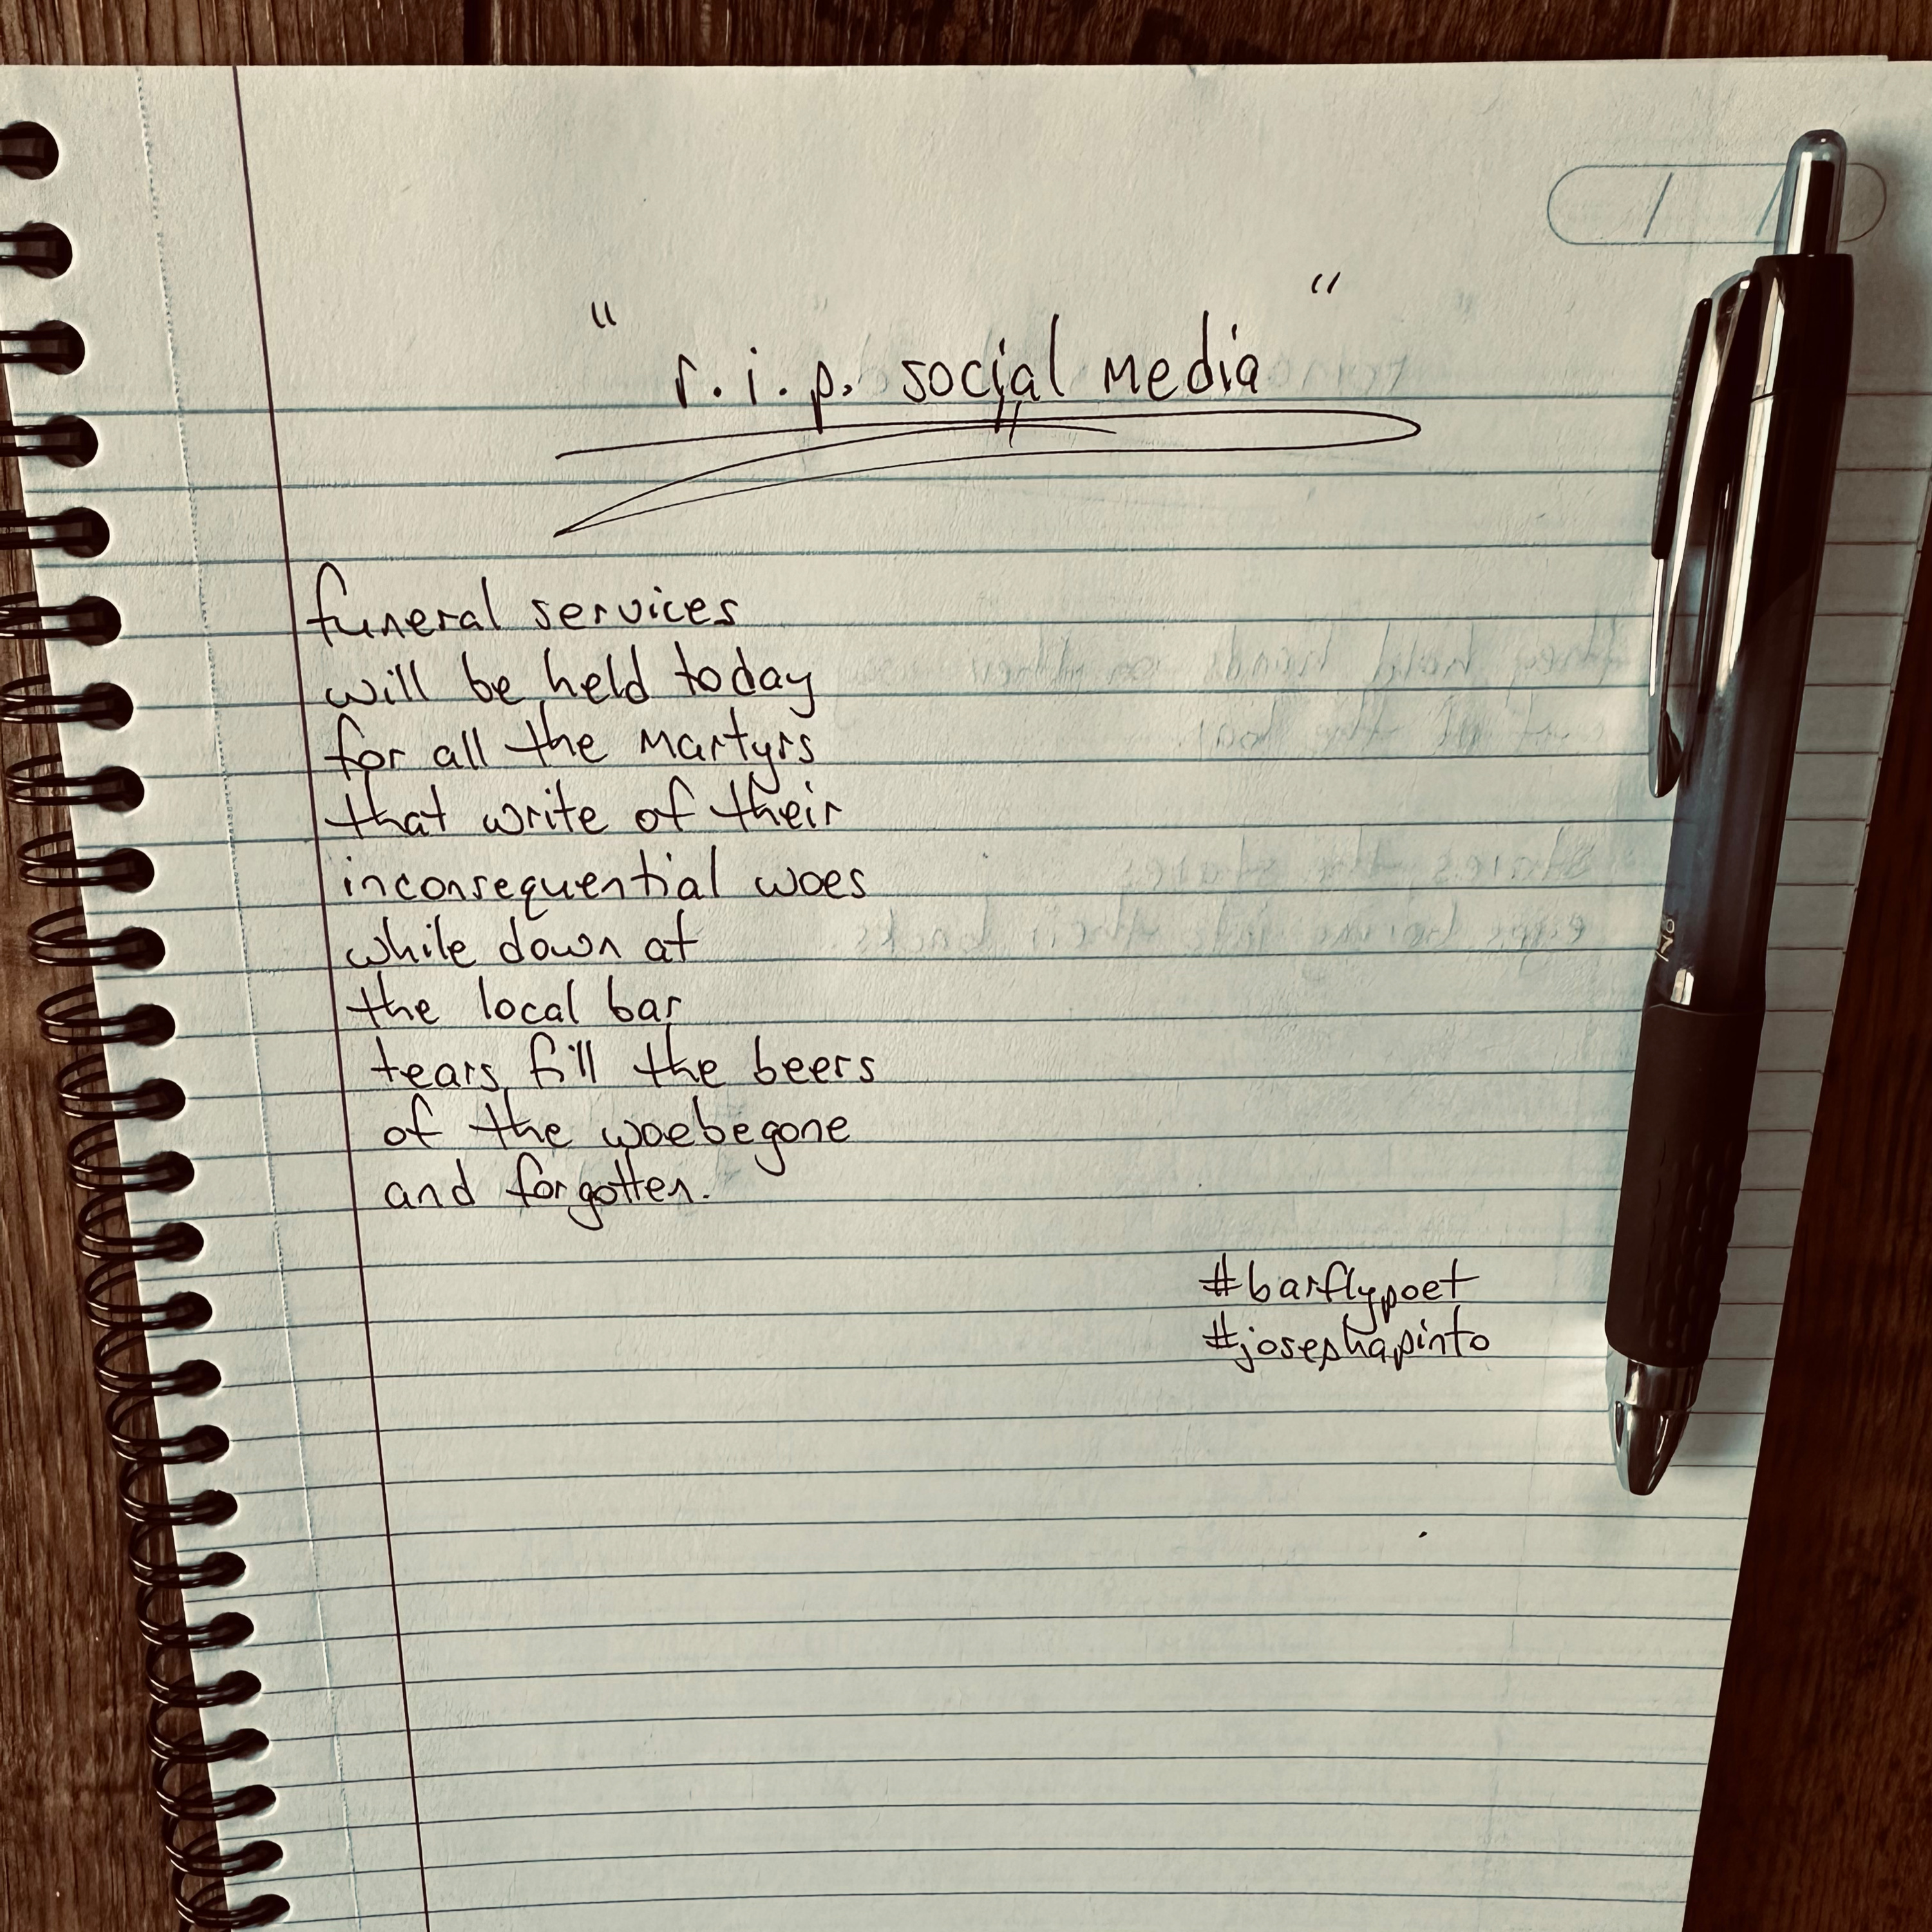 "r.i.p. social media"
funeral services
will be held today
for all the martyrs
that write of their
inconsequential woes
while down at
the local bar
tears fill the beers
of the woebegone
and forgotten.
#barflypoet
#josephapinto